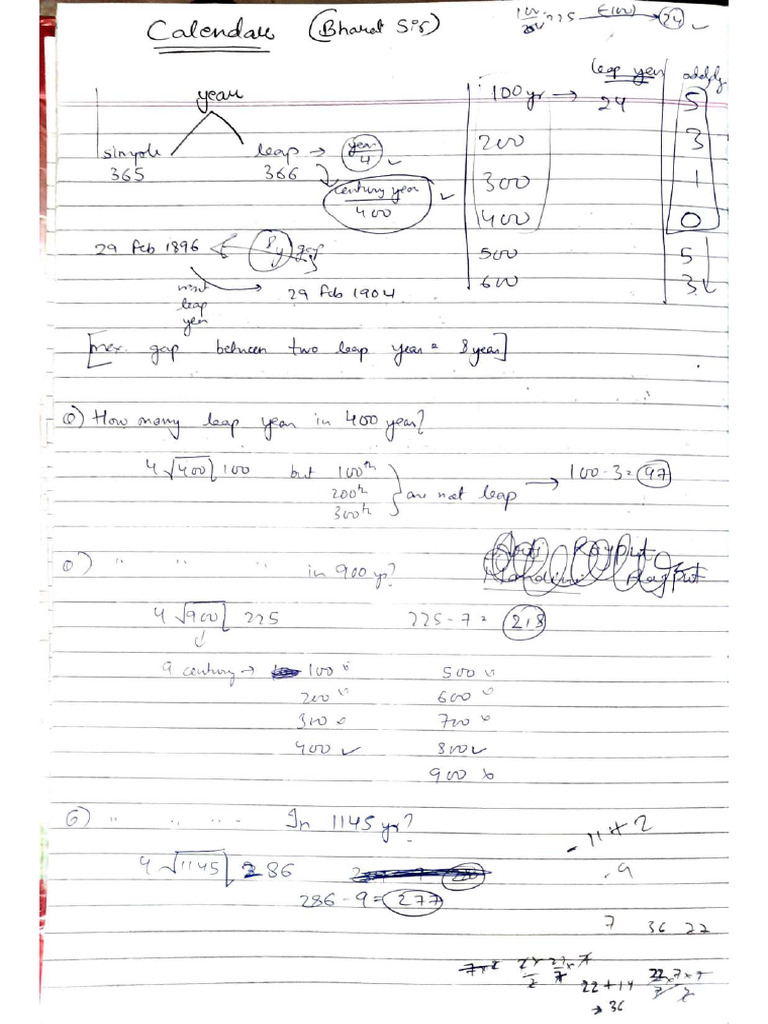 Calendar (Bharat Sir)
100 25 24
year
simple leap → year/4
365 366
century year/400
leap year
100 yr → 24 5
200 3
300 1
400 0
500 5
600 3
29 Feb 1896 8y gap
next leap year → 29 Feb 1904
[max. gap between two leap year = 8 year]
Q) How many leap year in 400 year?
4 √400 100 but 100th 200th 300th } are not leap → 100-3=97
Q) " " " in 900 yr?
4 √900 225 225-7= 218
9 century → 100 500
200 600
300 700
400 ✓ 800 ✓
900 x
Q) " " " In 1145 yr?
4 √1145 286
286-9=277
-11+2
-9
7 36 22
22+14
→ 36